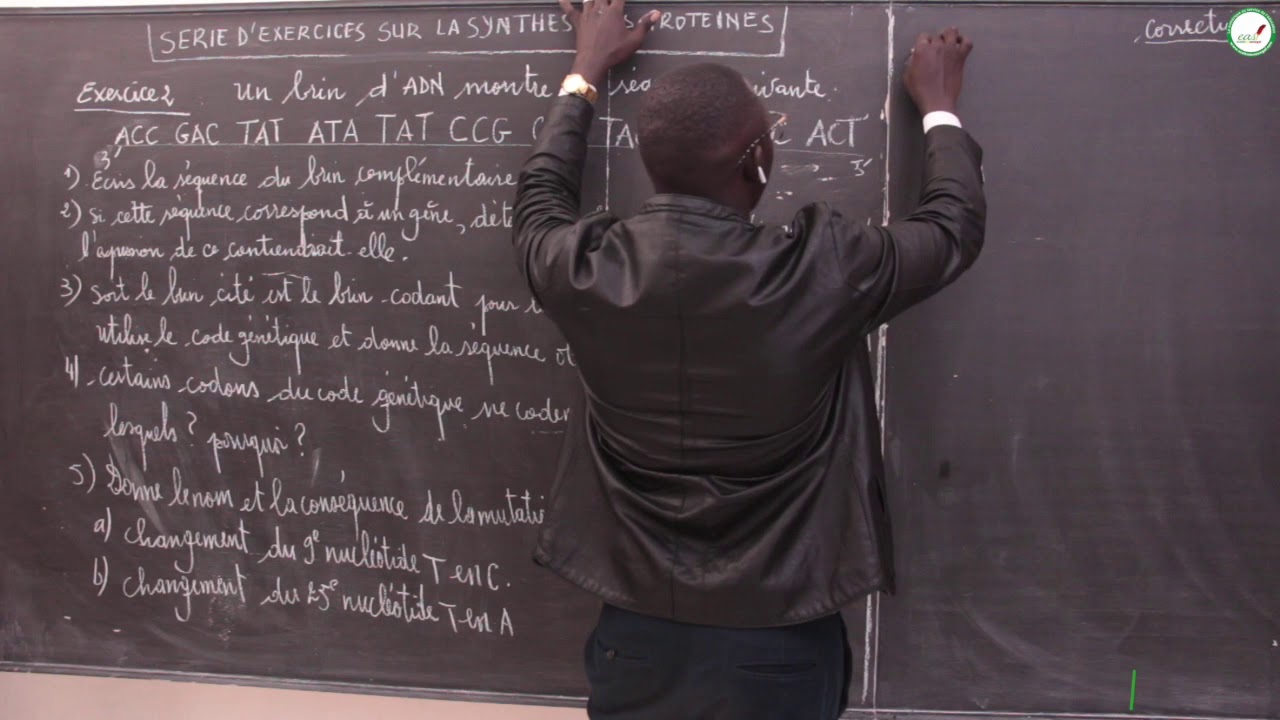 SERIE D'EXERCICES SUR LA SYNTHES ROTEINES
Correctu
eas!
Exercice 2 Un brin d'ADN montre ivante.
ACC GAC TAT ATA TAT CCG TA C ACT
3'
1) Ecris la séquence du brin complémentaire
2) Si cette séquence correspond à un gène, dét
l' de ce contiendrait-elle.
3) Soit le brin cité est le brin codant pour
utilise le code génétique et donne la séquence
4) certains codons du code génétique ne coden
lesquels? pourquoi?
5) Donne le nom et la conséquence de la mutati
a) changement du 9e nucléotide T en C.
b) changement du 25e nucléotide T en A